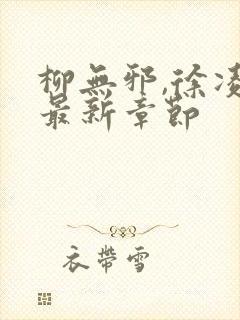 柳無邪,徐凌
最新章節
衣帶雪